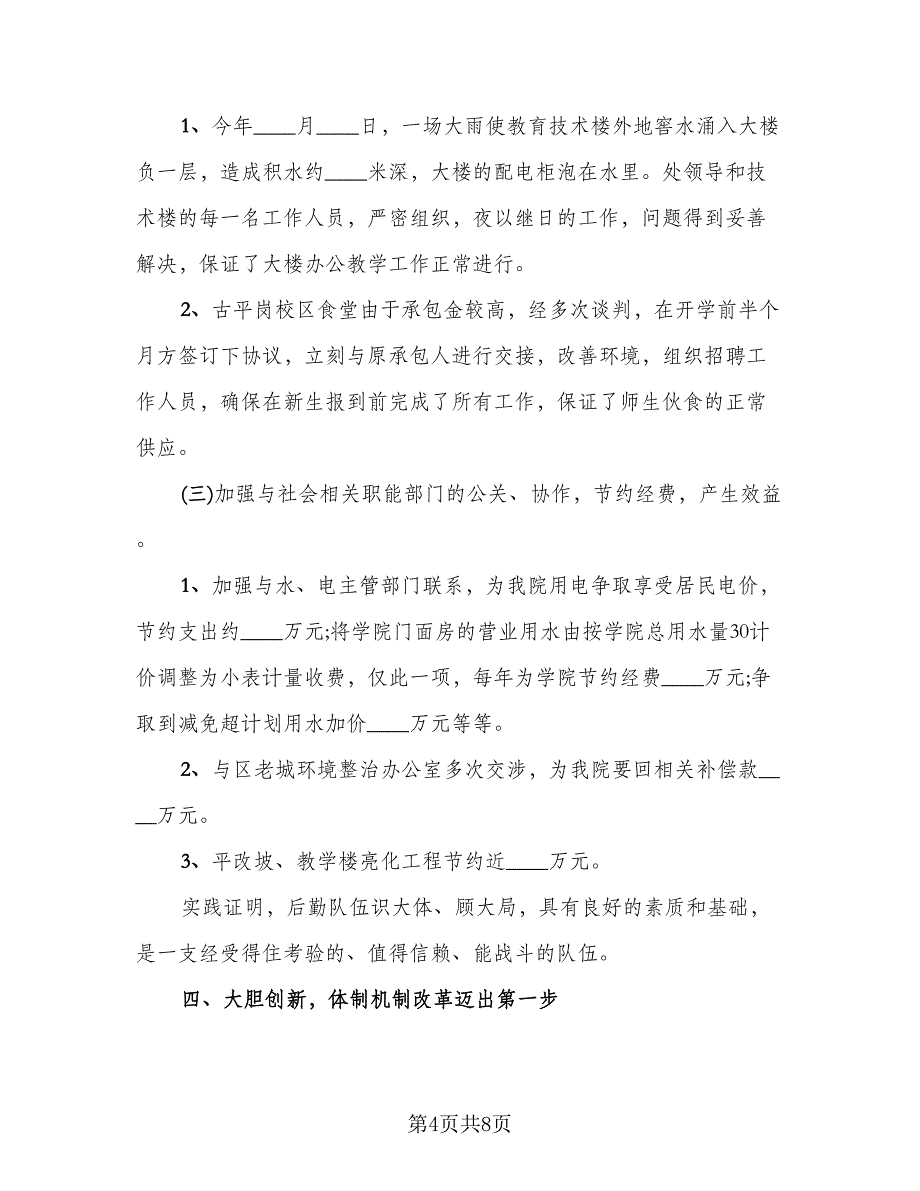 1、今年____月____日，一场大雨使教育技术楼外地窖水涌入大楼
负一层，造成积水约____米深，大楼的配电柜泡在水里。处领导和技
术楼的每一名工作人员，严密组织，夜以继日的工作，问题得到妥善
解决，保证了大楼办公教学工作正常进行。
2、古平岗校区食堂由于承包金较高，经多次谈判，在开学前半个
月方签订下协议，立刻与原承包人进行交接，改善环境，组织招聘工
作人员，确保在新生报到前完成了所有工作，保证了师生伙食的正常
供应。
(三)加强与社会相关职能部门的公关、协作，节约经费，产生效益
。
1、加强与水、电主管部门联系，为我院用电争取享受居民电价，
节约支出约____万元;将学院门面房的营业用水由按学院总用水量30计
价调整为小表计量收费，仅此一项，每年为学院节约经费____万元;争
取到减免超计划用水加价____万元等等。
2、与区老城环境整治办公室多次交涉，为我院要回相关补偿款__
__万元。
3、平改坡、教学楼亮化工程节约近____万元。
实践证明，后勤队伍识大体、顾大局，具有良好的素质和基础，
是一支经受得住考验的、值得信赖、能战斗的队伍。
四、大胆创新，体制机制改革迈出第一步
第4页共8页